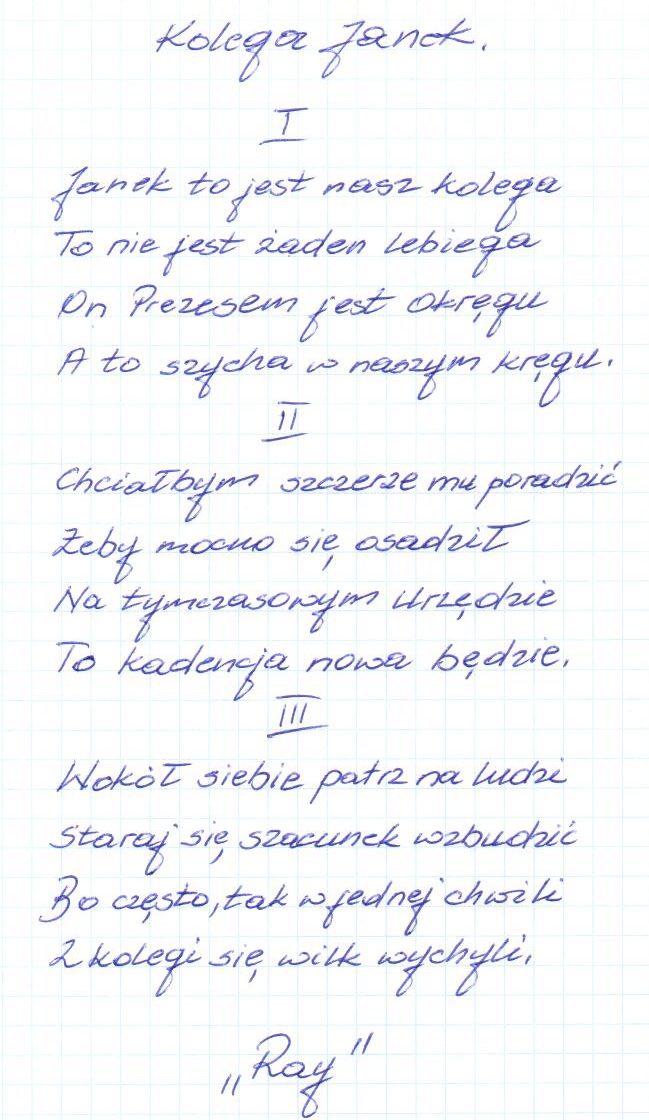 Kolega Janek.
I
Janek to jest nasz kolega
To nie jest żaden lebiega
On Prezesem jest Okręgu
A to szycha w naszym kręgu.
II
Chciałbym szczerze mu poradzić
Żeby mocno się osadził
Na tymczasowym Urzędzie
To kadencja nowa będzie.
III
Wokół siebie patrz na ludzi
Staraj się szacunek wzbudzić
Bo często, tak w jednej chwili
Z kolegi się wilk wychyli.
„Ray"